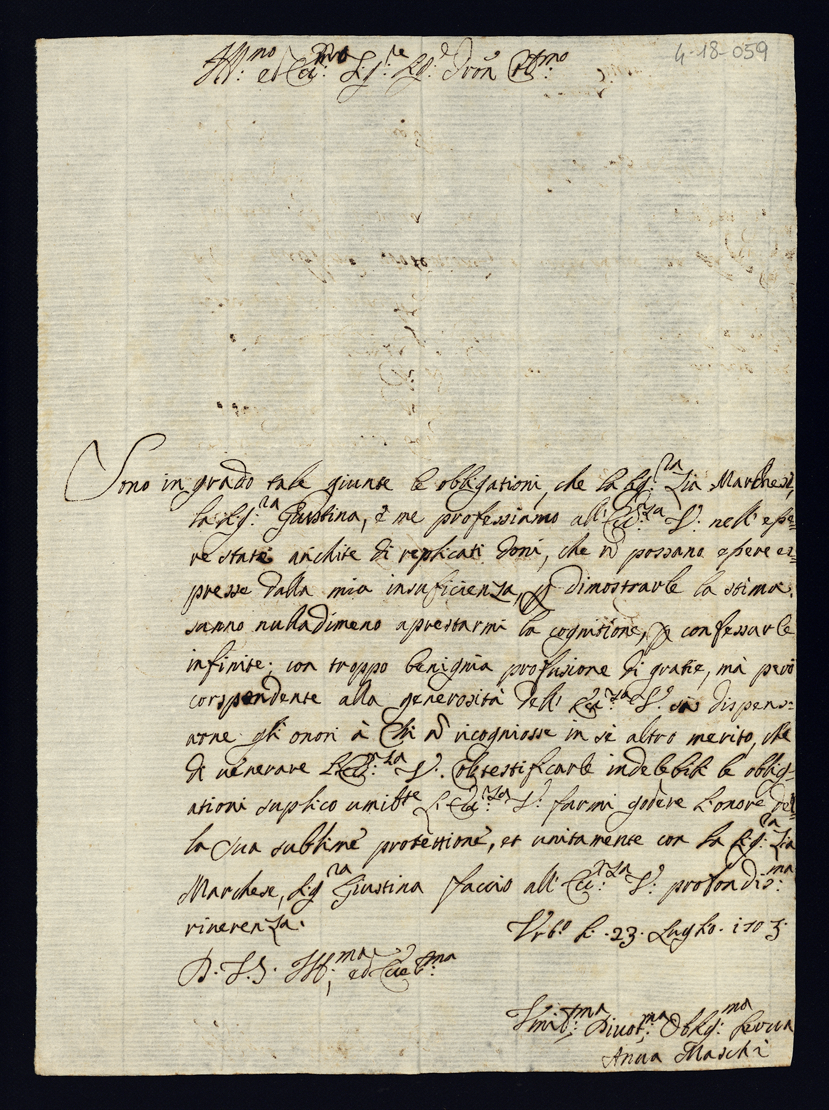 4-18-059
Ill:mo et Ecc:mo Sig:re Sig:e Pron Col:mo
Sono in grado tale giunte le obligationi, che la Sig:ra Zia Marchese,
la Sig:ra Giustina, è me professiamo all' Ecc:za V: nell' esse=
re state anchite di replicati doni, che nõ possano essere es=
presse dalla mia insuficienza, p dimostrarle la stima.
sanno nulladimeno aprestarmi la cognitione, p confessarle
infinite; con troppo benignia profusione di gratie, mà però
corspondente alla generosità dell' Ecc:za V: sà dispens=
arne gli onori à Chi nõ ricogniosse in sè altro merito, che
di venerare L'Ecc:za V. Obtestificarle indelebili le oblig=
ationi suplico umilte L'Ecc:za V: farmi godere l'onore del=
la sua sublime protettione, et unitamente con la Sig:ra Zia
Marchese, Sig:ra Giustina faccio all' Ecc:za V: profondis:ma
riverenza.
Urb:o li .23. Luglio. 1703.
D. V. S. Ill:ma, ed Ecc:ma
Umil:ma Divot:ma Oblig:ma Serva
Anna Maschi